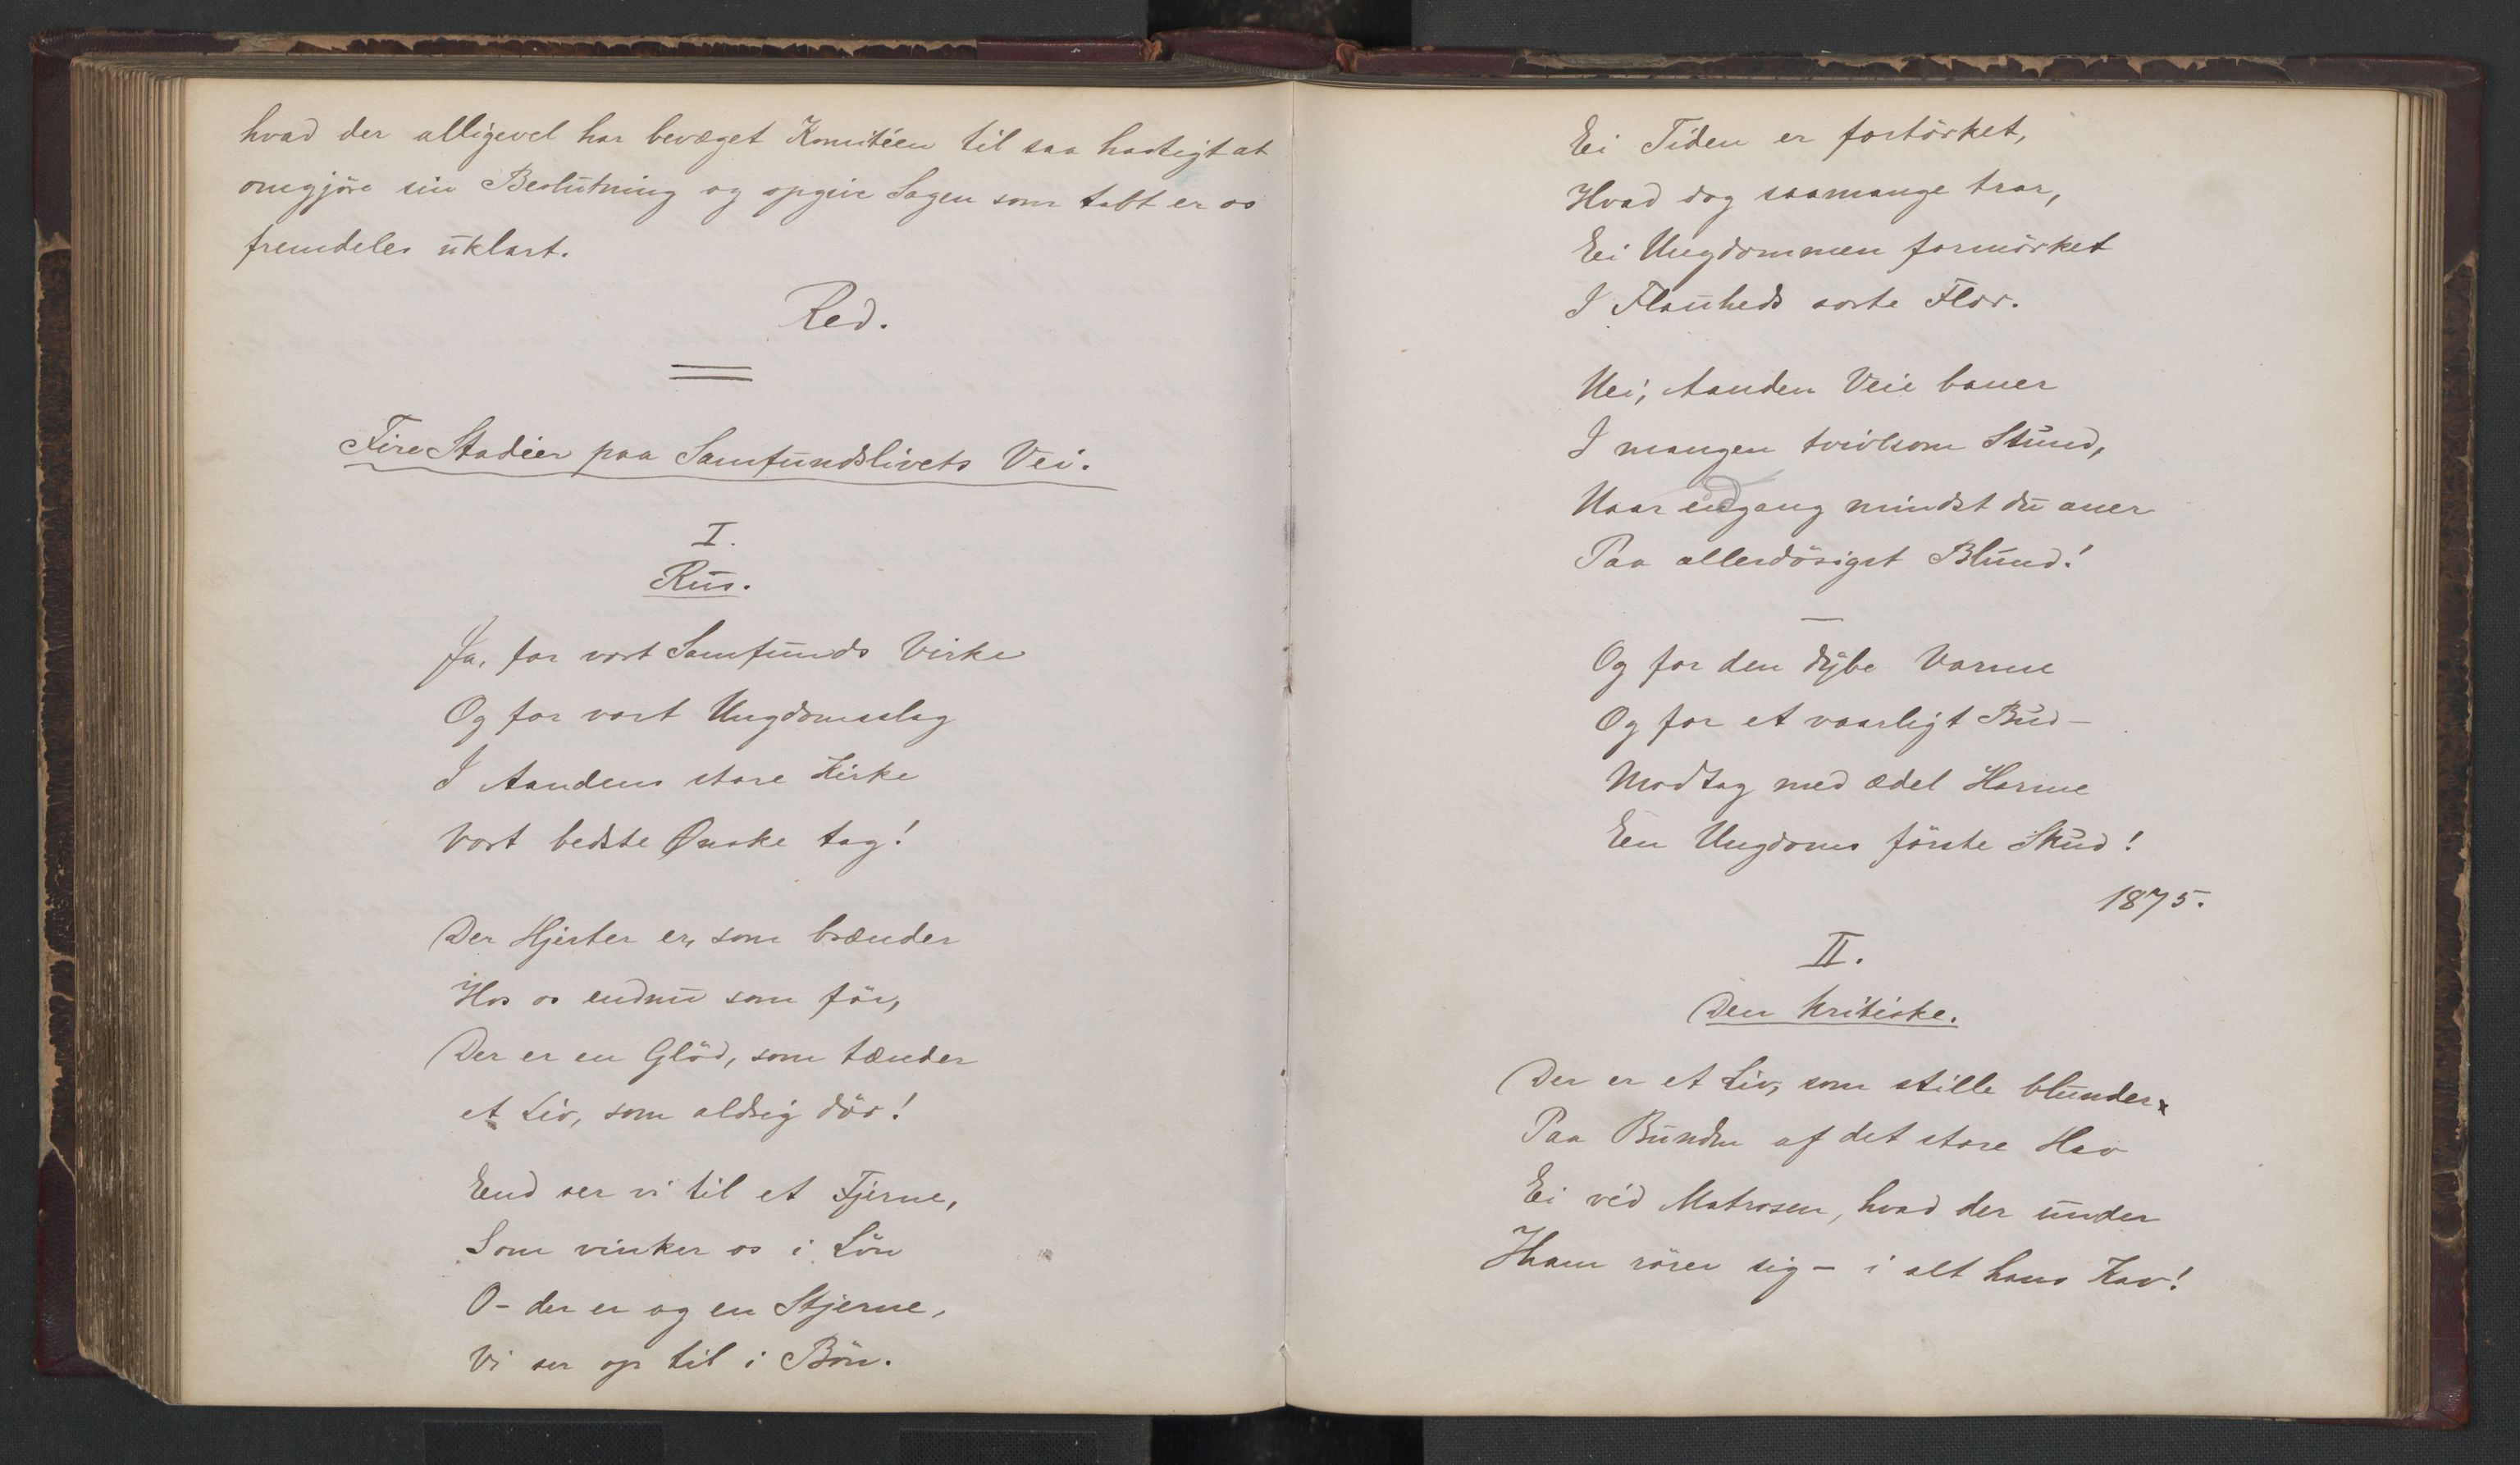 hvad der alligevel har bevæget Komitéen til saa hastigt at
omgjöre sin Beslutning og opgive Sagen som tabt er os
fremdeles uklart.
Red.
Fire Stadier paa Samfundslivets Vei.
I.
Rus.
Ja, for vort Samfunds Virke
Og for vort Ungdomslag
I Aandens store Kirke
Vort bedste Ønske tag!
Der Hjerter er, som brænder
Hos os endnu som för,
Der er en Glöd, som tænder
et Liv, som aldrig dör!
End ser vi til et Fjerne,
Som vinker os i Lön
O- der er og en Stjerne,
Vi ser op til i Bön.
Ei Tiden er fortörket,
Hvad dog saamange tror,
Ei Ungdommen formörket
I Flauheds sorte Flor.
Nei, Aanden Veie baner
I mangen tvivlsom Stund,
Naar engang mindst du aner
Paa allerdösigst Blund!
Og for den dybe Varme
Og for et vaarligt Bud-
Modtag med ædel Harme
En Ungdoms förste Skud!
1875.
II.
Den kritiske.
Der er et Liv, som stille blunder
Paa Bunden af det store Hav
Ei véd Matrosen, hvad der under
Ham rörer sig - i alt hans Kav!